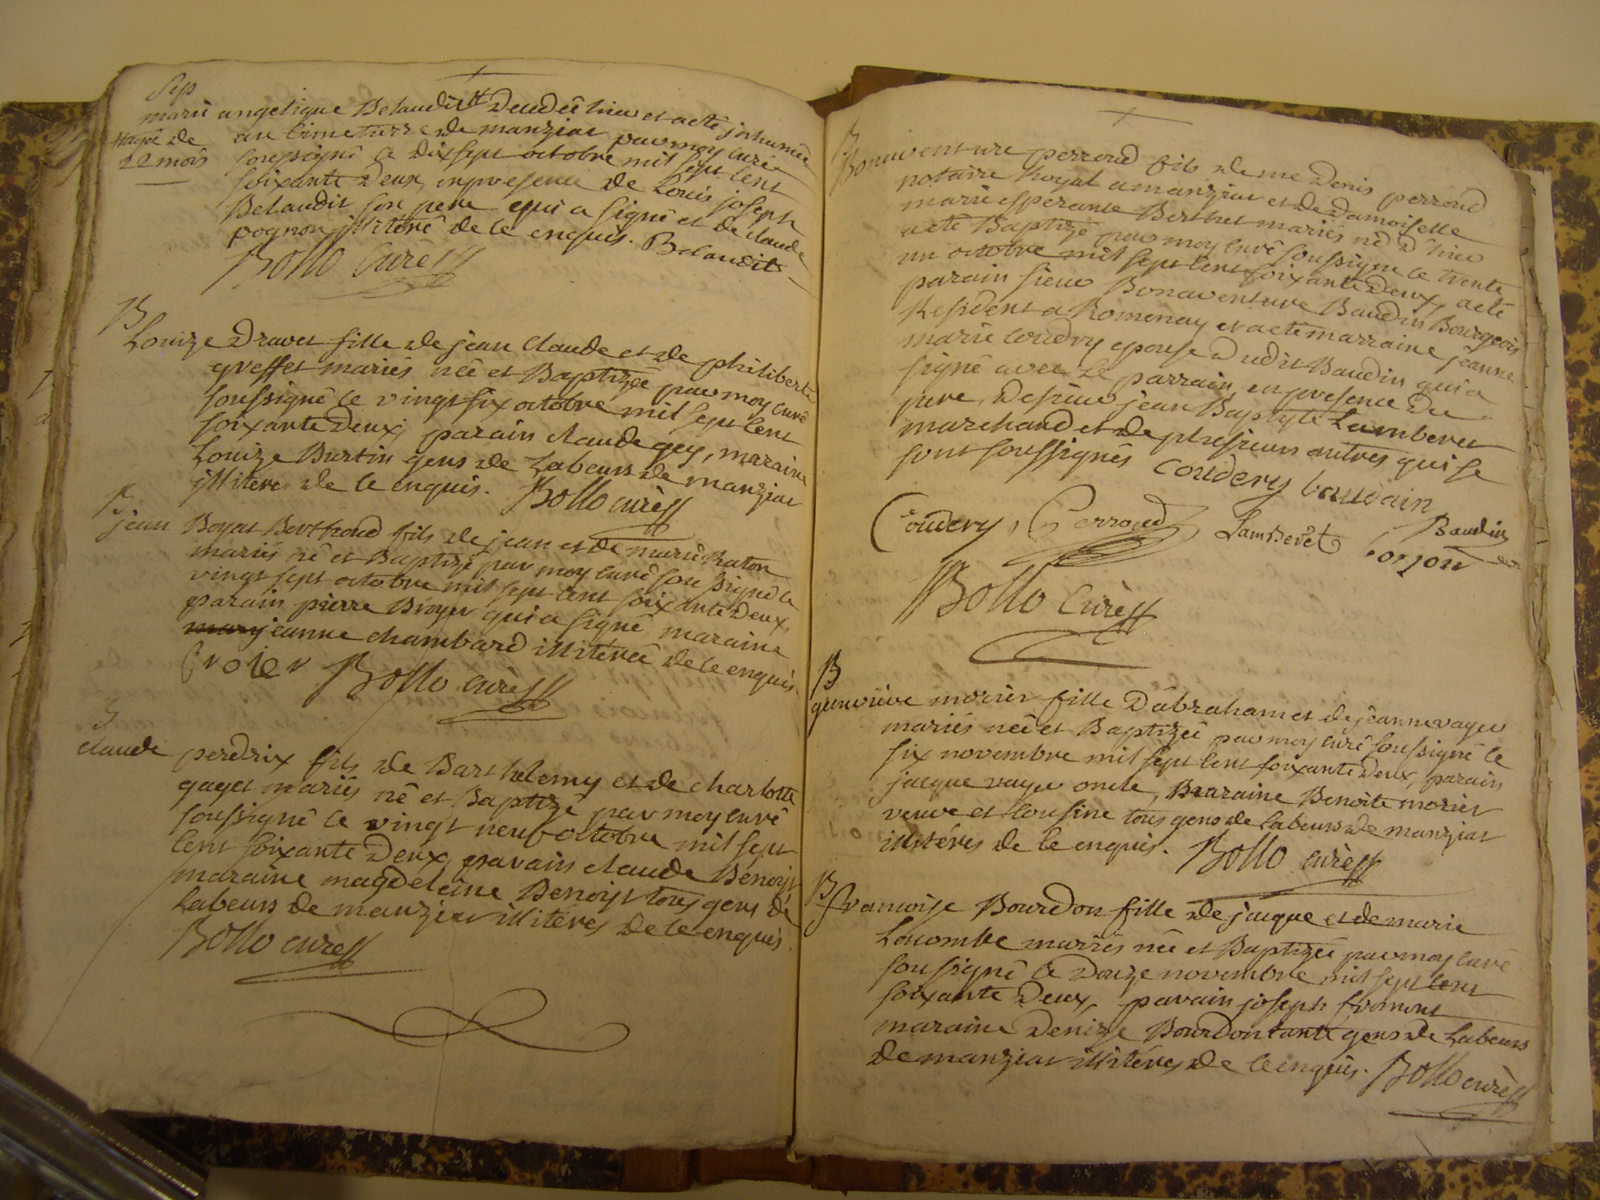 Sep
marie angelique Belaudit Decedée hier et a eté inhumée
agée de
22 mois
au cimetiere de manziat par moy curé
soussigné le dix sept octobre mil sept cent
soixante deux, en presence de Louis joseph
Belaudit son pere qui a signé et de claude
pognon illiteré de ce enquis. Belaudit
Bollo curé
B
Louize Dravet fille de jean claude et de philiberte
greffet mariés née et Baptizée par moy curé
soussigné le vingt six octobre mil sept cent
soixante deux, parain claude gey, maraine
Louize Burtin gens de Labeurs de manziat
illiteres de ce enquis. Bollo curé
B
jean Boyat Bertrond fils de jean et de marie Raton
mariés né et Baptizé par moy curé soussigné le
vingt sept octobre mil sept cent soixante deux,
parain pierre Broyer qui a signé maraine
mary jeanne chambard illiterée de ce enquis
Broier Bollo curé
B
claude perdrix fils de Barthelemy et de charlotte
gayet mariés né et Baptizé par moy curé
soussigné le vingt neuf octobre mil sept
cent soixante deux, parain claude Benoist
maraine magdeleine Benoist tous gens de
Labeurs de manziat illiterés de ce enquis
Bollo curé
B
Bonaventure perroud fils de me Denis perroud
notaire Royal a manziat et de Damoiselle
marie esperance Berthet mariés né d'hier
a eté Baptizé par moy curé soussigné le trente
un octobre mil sept cent soixante deux, a eté
parain sieur Bonaventure Baudin Bourgeois
Resident a Romenay et a eté marraine jeanne
marie Coudry epouse dudit Baudin qui a
signé avec le parrain, en presence du
pere, de sieur jean Baptiste Lamberet
marchand et de plusieurs autres qui se
sont soussignés coudery baudain
Coudery, Perroud Lamberet Baudin
Bollo curé
B
genevieve morier fille d'abraham et de jeanne vayer
mariés née et Baptizée par moy curé soussigné le
six novembre mil sept cent soixante deux, parain
jacque vayer oncle, maraine Benoite morier
veuve et cousine tous gens de labeurs de manziat
illiterés de ce enquis. Bollo curé
B
francoise Bourdon fille de jacque et de marie
Lacombe mariés née et Baptizée par moy curé
soussigné le douze novembre mil sept cent
soixante deux, parain joseph fromont
maraine Denize Bourdon tante gens de Labeurs
de manziat illiterés de ce enquis. Bollo curé